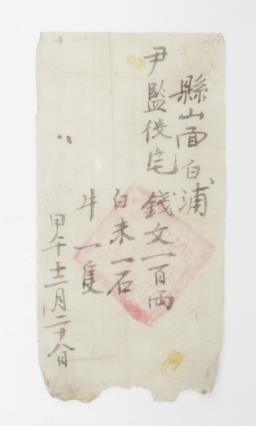 縣山面白浦
尹監役宅 錢文一百兩
白米一石
牛一隻
甲午十一月二十八日